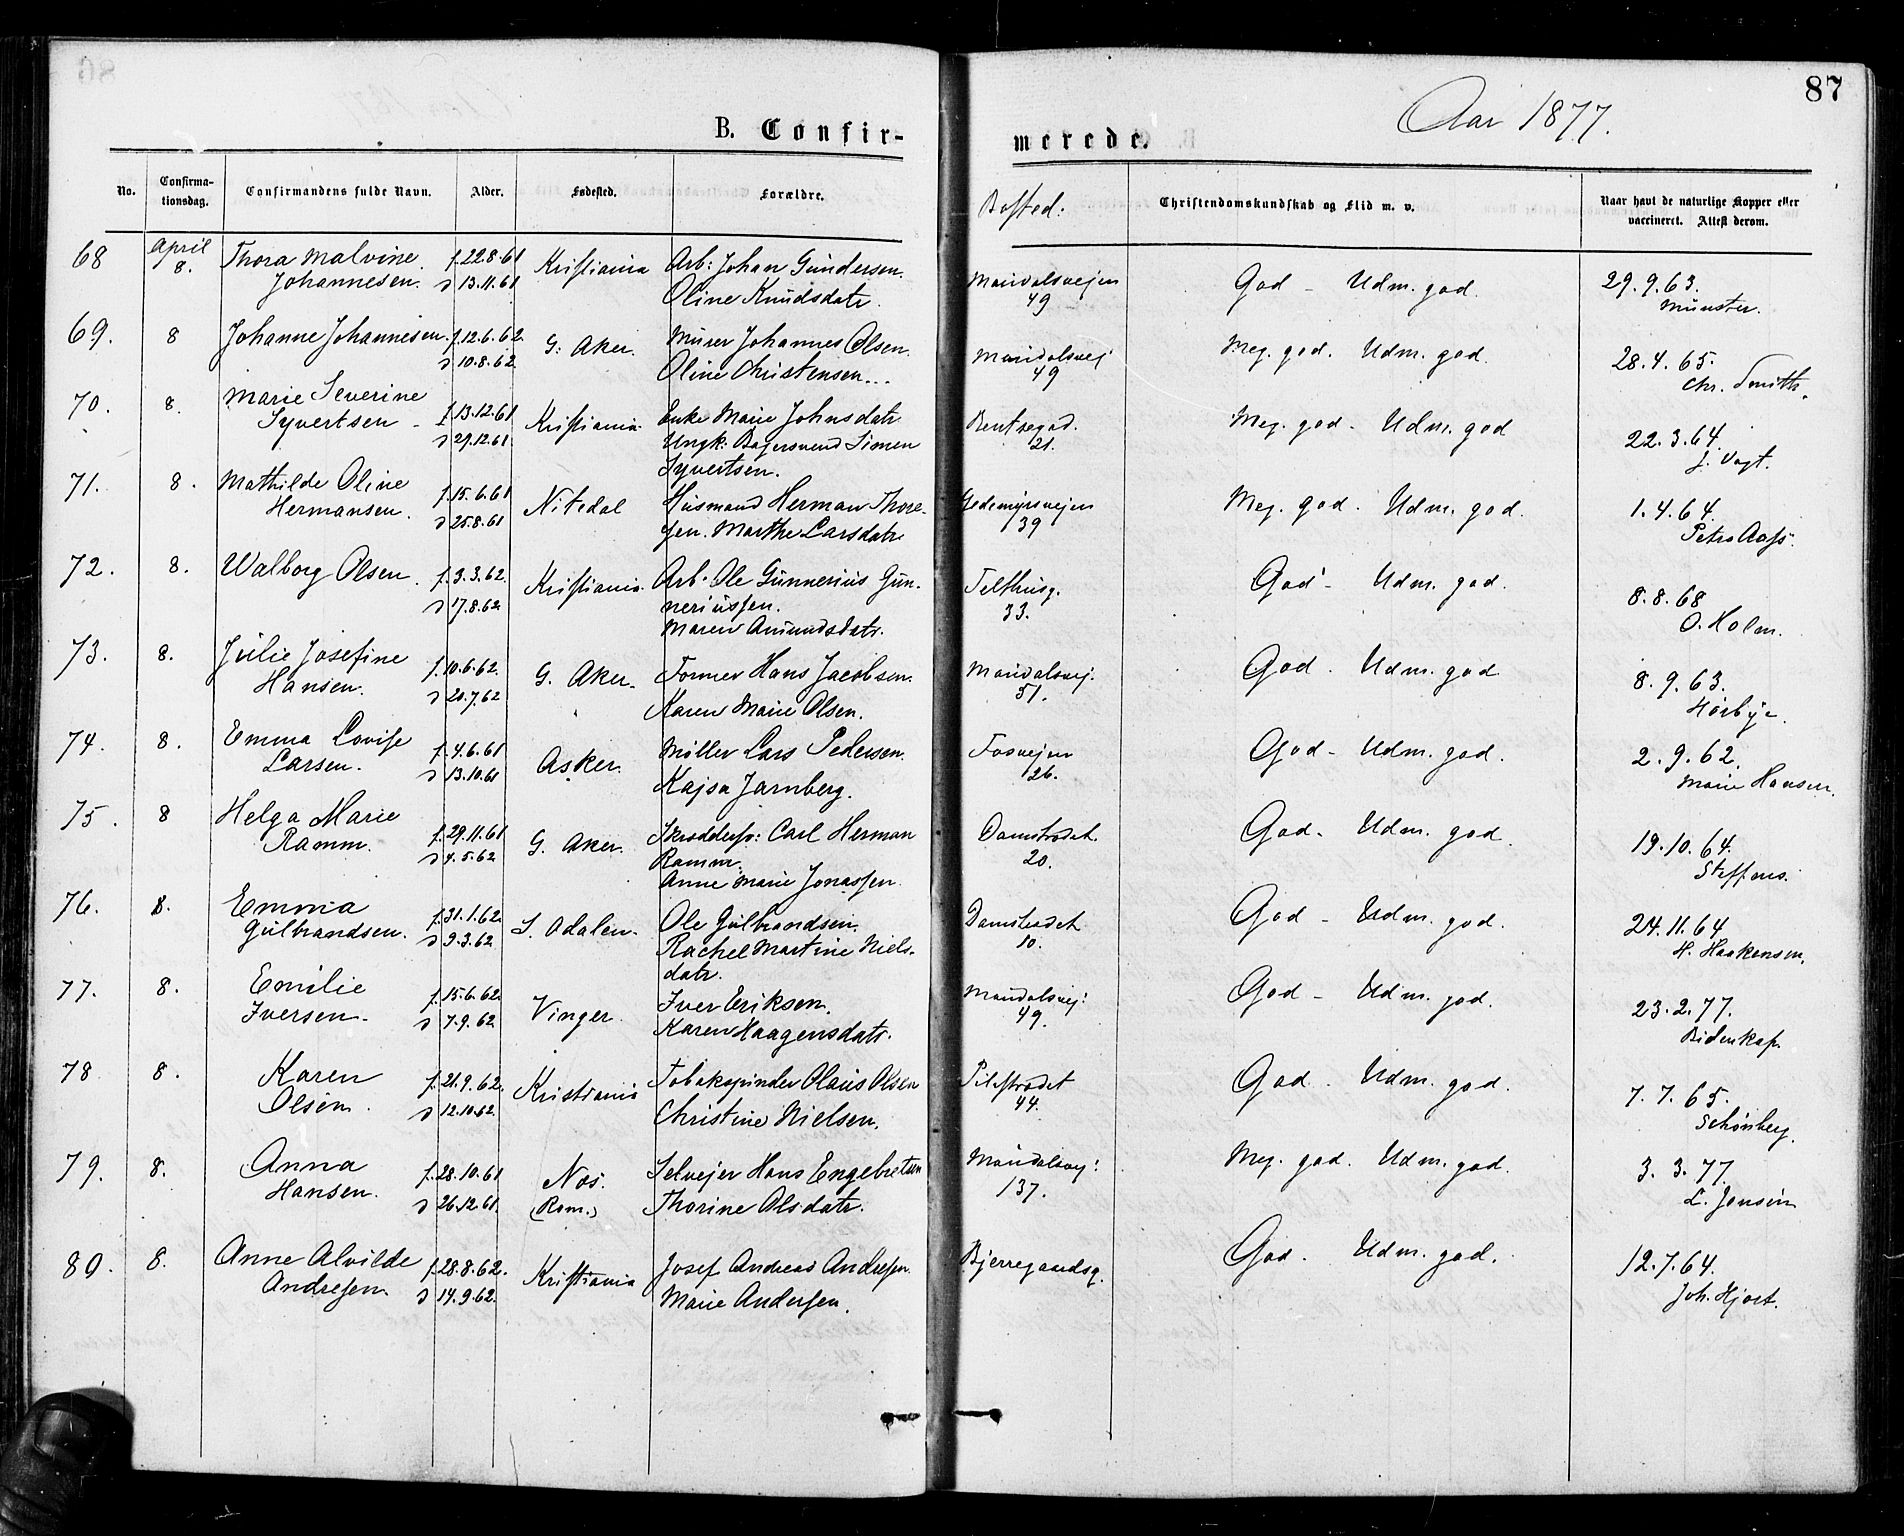 87
Aar 1877.
B. Confir-
merede.
No.
Confirma-
tionsdag.
Confirmandens fulde Navn.
Alder.
Fødested.
Forældre.
Bosted:
Christendomskundskab og Flid m. v.
Naar havt de naturlige Kopper eller
vaccineret. Attest derom.
68 April Thora Malvine f. 22.8.61 Kristiania Arb: Johan Gundersen. Maridalsveien God - Udm. god. 29.9.63.
8. Johannesen. d 13.11.61 Oline Knudsdatr. 49 Münster.
69. 8 Johanne Johannesen. f. 12.6.62. G: Aker. Murer Johannes Olsen. Maridalsvej Meg. god. Udm. god. 28.4.65.
d 10.8.62. Oline Christensen... 49 Chr. Smith.
70. 8. Marie Severine f. 13.12.61 Kristiania Enke Marie Johnsdatr Bentsegad. Meg. god. Udm. god 22.3.64.
Syvertsen - d 29.12.61. Ungk: Bagersvend Simen 21. J. Vogt.
Syvertsen.
71. 8. Mathilde Oline f. 15.6.61 Nitedal Husmand Herman Thore- Gedemyrsvejen Meg. god. Udm. god. 1.4.64.
Hermansen. d 25.8.61 sen. Marthe Larsdatr 39 Petra Aass.
72. 8. Walborg Olsen. f. 3.3.62. Kristiania. Arb. Ole Gunnerius Gun- Telthusg. God - Udm. god. 8.8.68
d 17.8.62. neriussen. 33. O. Holm.
Maren Amundsdatr.
73. 8. Julie Josefine f. 10.6.62. G. Aker. Former Hans Jacobsen. Maridalsvej. God. Udm. god. 8.9.63.
Hansen. d 20.7.62 Karen Marie Olsen. 51. Hörbye.
74. 8. Emma Lovise f. 4.6.61 Asker. Møller Lars Pedersen. Fosvejen God - Udm. god. 2.9.62.
Larsen. d 13.10.61 Kajsa Jarnberg. 26. Marie Hansen.
75. 8 Helga Marie f. 29.11.61 G. Aker. Skræddersv: Carl Herman Damstrædet. God. Udm. god. 19.10.64.
Ramm. d 4.5.62 Ramm. 20. Steffens.
Anne Marie Jonassen.
76. 8. Emma f. 31.1.62. S. Odalen. Ole Gulbrandsen. Damstrædet God - Udm. god. 24.11.64
Gulbrandsen. d 9.3.62 Rachel Martine Niels- 10. H. Haakensen.
datr.
77. 8. Emilie f. 15.6.62. Vinger. Iver Eriksen. Maridalsvej: God - Udm. god. 23.2.77.
Iversen. d 7.9.62. Karen Haagensdatr. 49. Bidenkap.
78 8. Karen f. 21.9.62. Kristiania Tobakspinder Olaus Olsen Pilestrædet God. Udm. god. 7.7.65.
Olsen. d 12.10.62. Christine Nielsen. 44. Schønberg.
79. 8. Anna f. 28.10.61 Næs. Selvejer Hans Engebretsen Maridalsvej: Meg. god. Udm. god. 3.3.77.
Hansen. d 26.12.61. (Rom.) Thorine Olsdatr. 137. L. Jensen
80. 8. Anne Alvilde f. 28.8.62. Kristiania Josef Andreas Andresen. Bjerregaardsg. God. Udm. god. 12.7.64.
Andresen. d 14.9.62. Marie Andersen. Joh. Hjort.